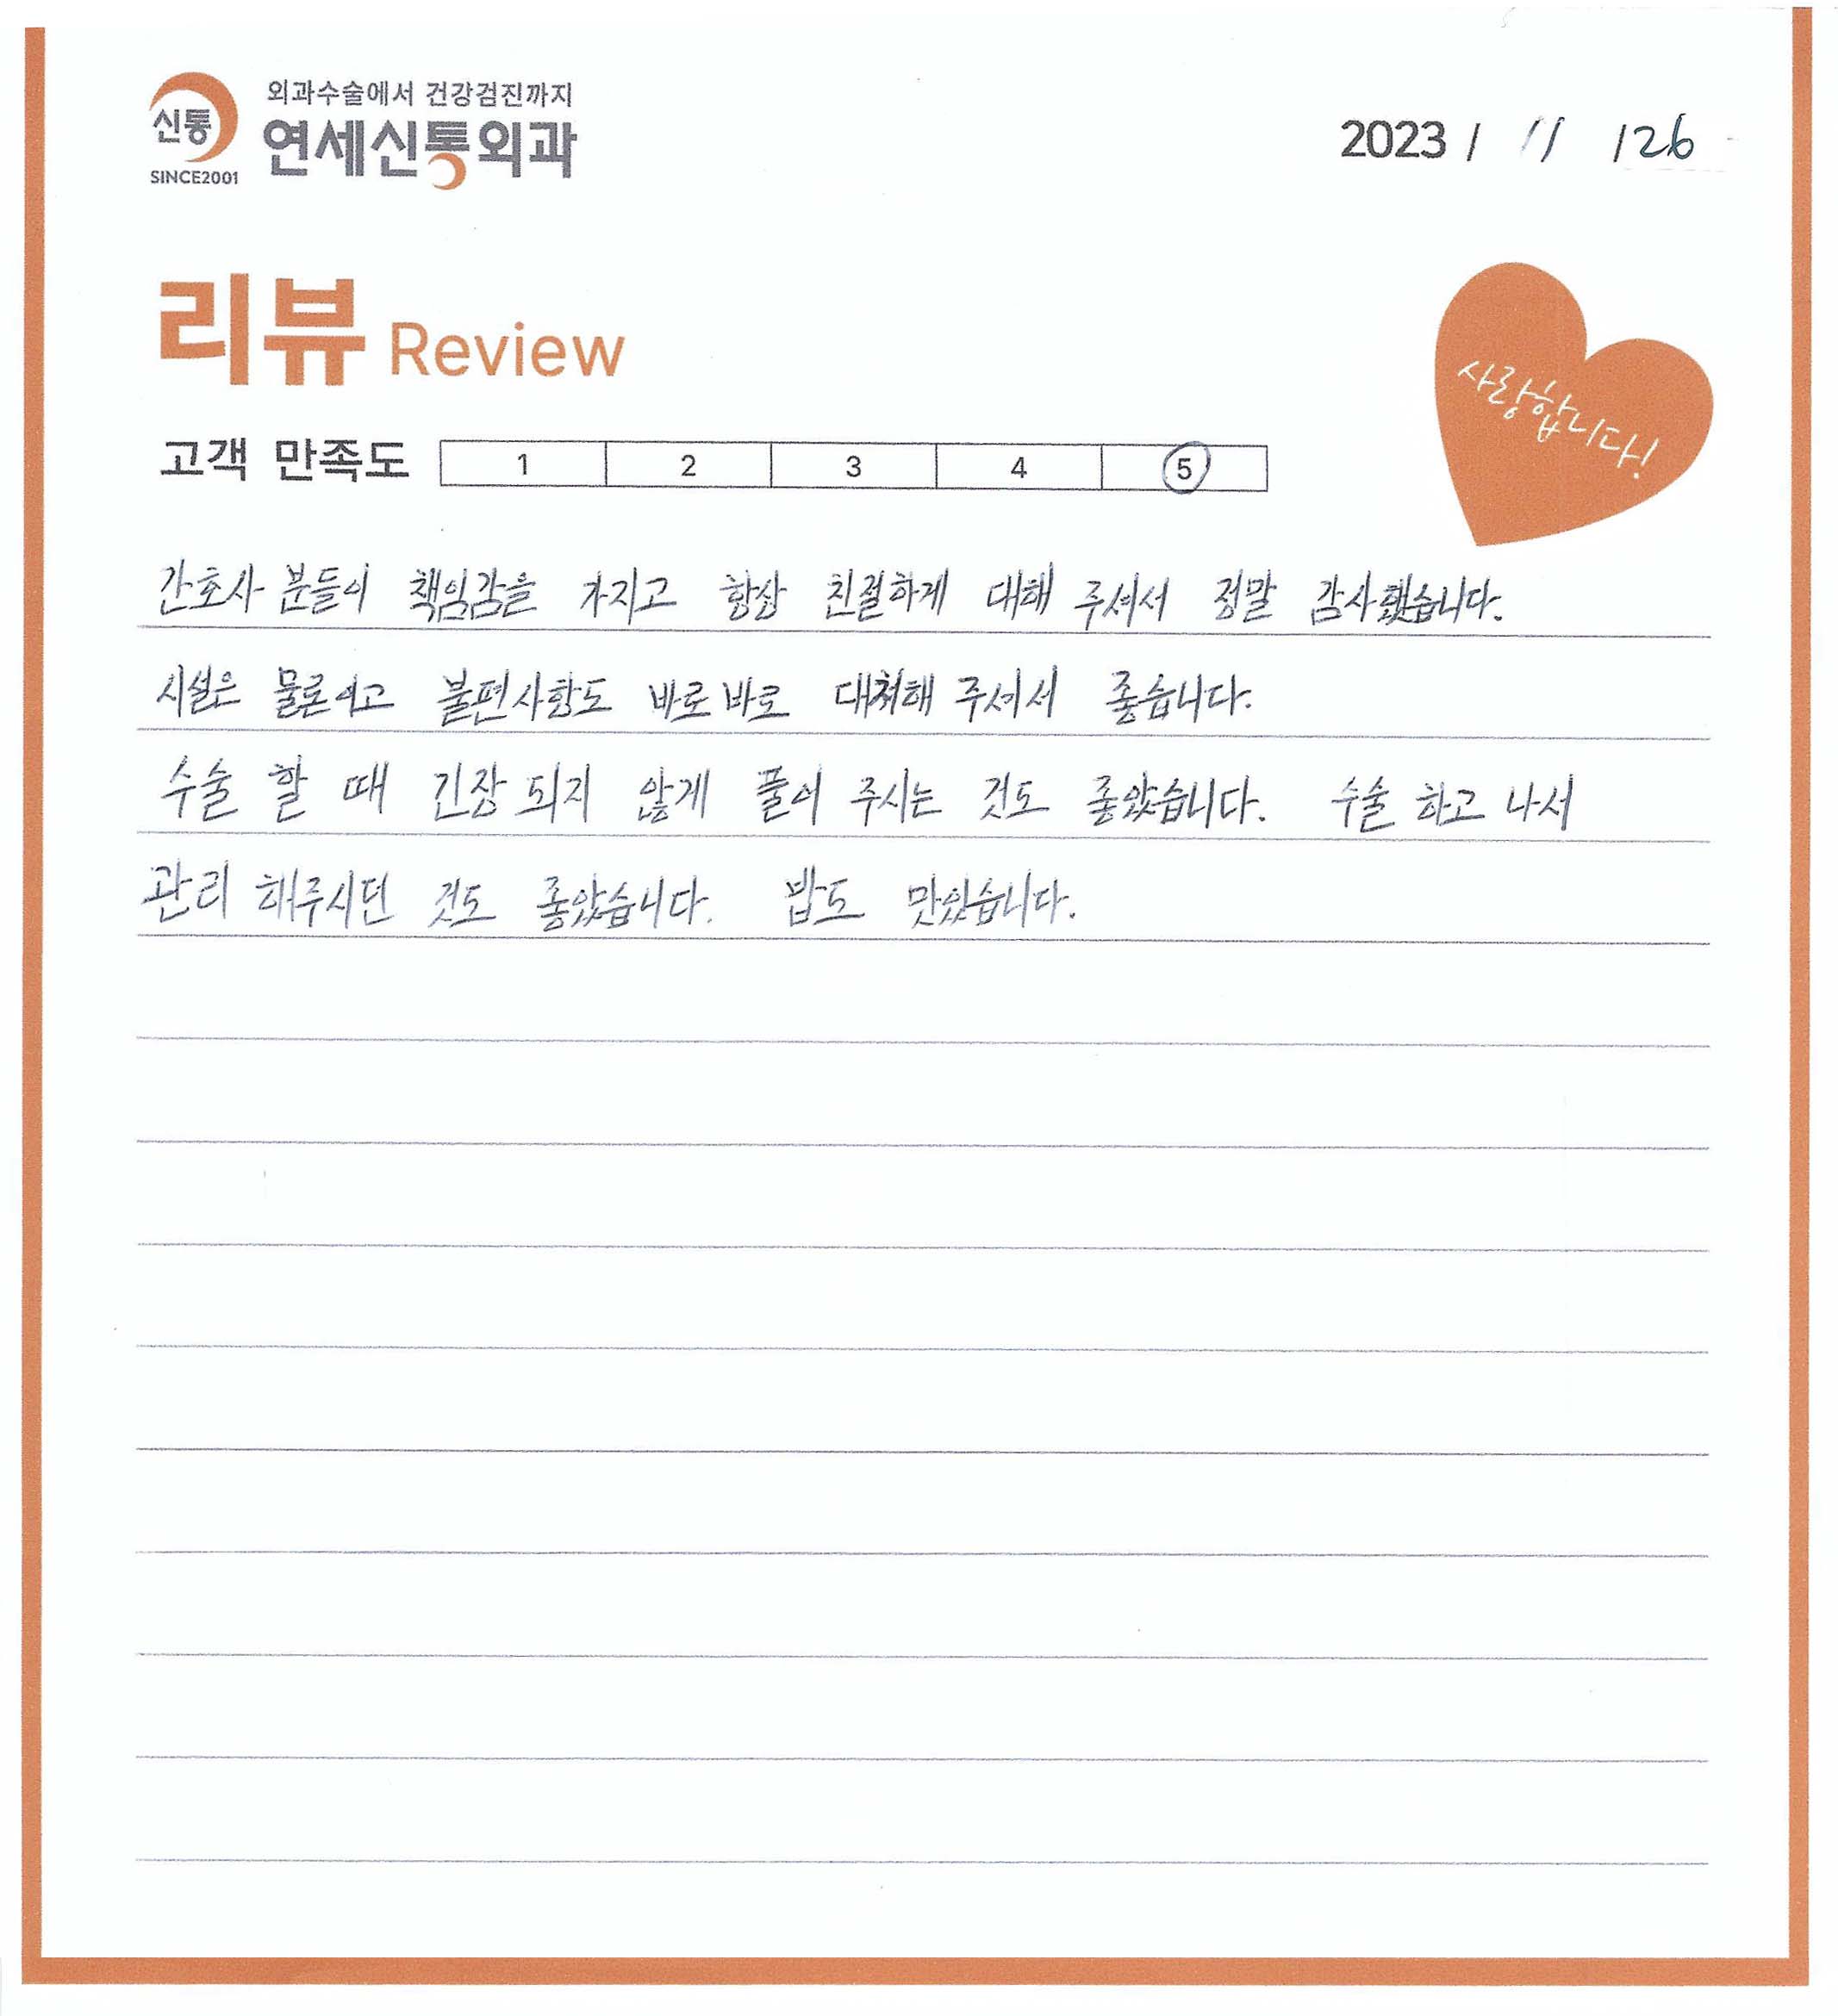 외과수술에서 건강검진까지
신통
연세신통외과
SINCE2001
2023 / 11 / 26
리뷰 Review
사랑합니다!
고객 만족도 1 2 3 4 5
간호사 분들이 책임감을 가지고 항상 친절하게 대해 주셔서 정말 감사했습니다.
시설은 물론이고 불편사항도 바로바로 대처해 주셔서 좋습니다.
수술 할 때 긴장 되지 않게 풀어 주시는 것도 좋았습니다. 수술 하고 나서
관리 해주시던 것도 좋았습니다. 밥도 맛있습니다.